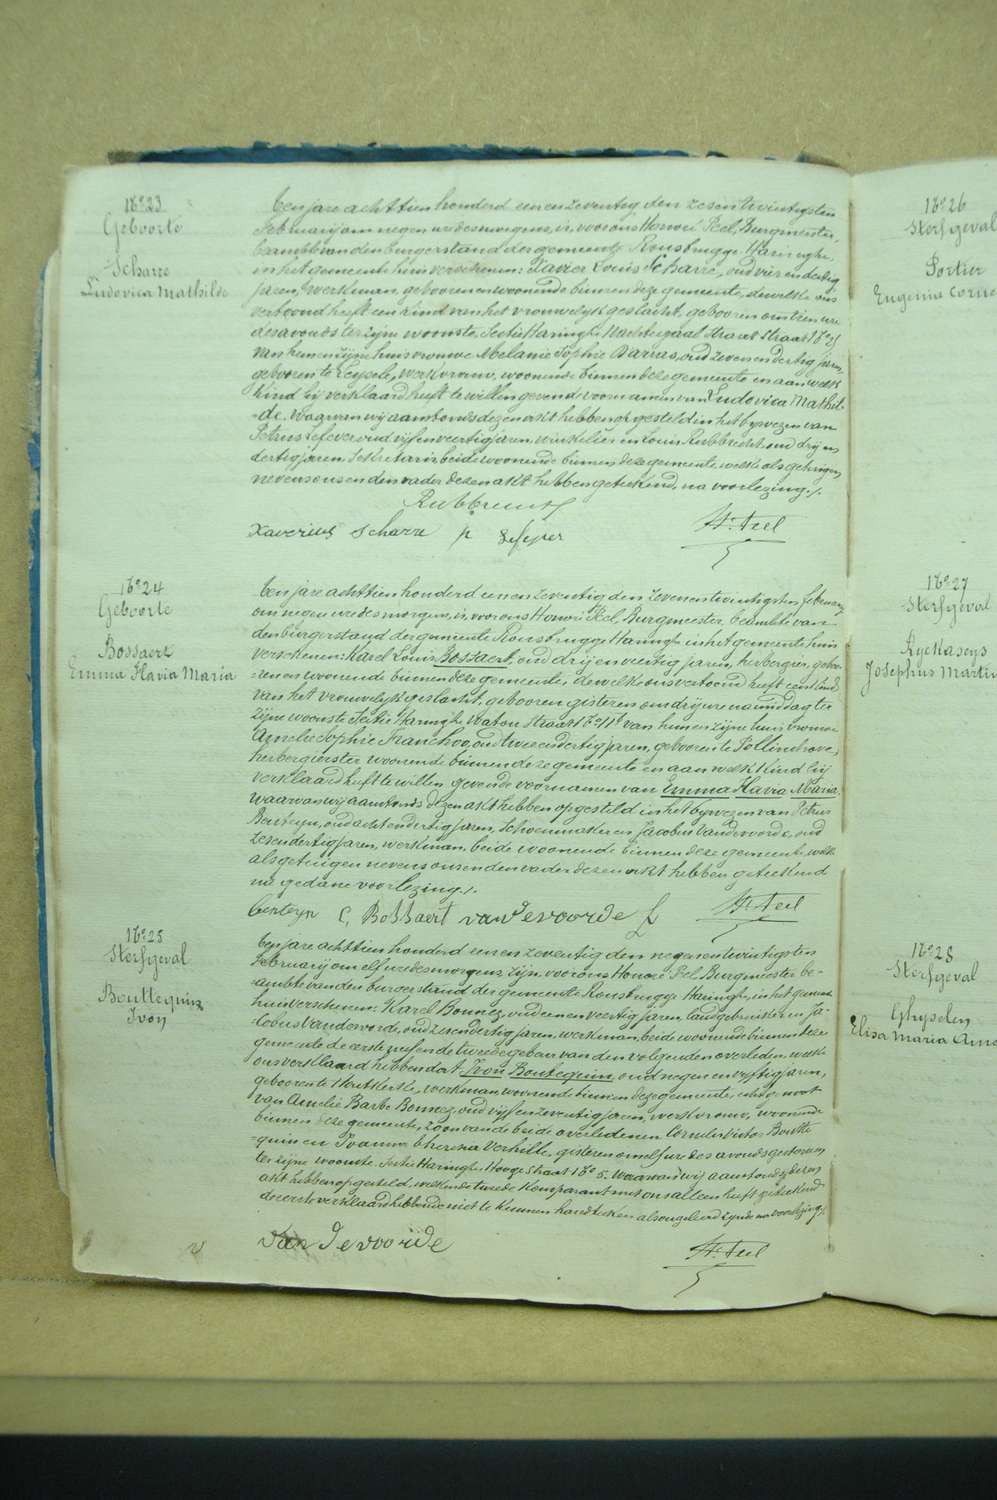 No 23
Geboorte
Scharre
Ludovica Mathilde
Ten jare achttien honderd een en zeventig den zesentwintigsten
februarij om negen ure des morgens, is, voor ons Honoré Peel, Burgmeester,
beambte van den burgerstand der gemeente Rousbrugge Haringhe,
in het gemeente huis verschenen: Xavier Louis Scharre, oud vier en dertig
jaren, werkman, geboren en woonende binnen deze gemeente, dewelke ons
vertoond heeft een kind van het vrouwelyk geslacht, geboren om tien ure
des avonds ter zyne woonste, Sectie Haringhe Nachtegaal Straat No
van hem en zyne huisvrouwe Melanie Sophie Barras, oud zeven en dertig jaren,
geboren te Leysele, werkvrouw, woonende binnen deze gemeente en aan welk
kind hy verklaard heeft te willen gevende voornamen van Ludovica Mathil-
-de. Waarvan wy aanstonds dezen akt hebben opgesteld in het bywezen van
Petrus Lefever oud vyf en veertig jaren, winkelier en Louis Rubbrecht oud dry en
dertig jaren, Sekretaris beide woonende binnen deze gemeente, welke als getuigen,
nevens ons en den vader dezen akt hebben geteekend, na voorlezing ./.
Rubbrecht
Xaverius Scharre p Lefever
H. Peel
No 24
Geboorte
Bossaert
Emma Flavia Maria
Ten jare achttien honderd een en zeventig den zevenentwintigsten februarij
om negen ure des morgens, is, voor ons Honoré Peel, Burgmeester, beambte van
den burgerstand der gemeente Rousbrugge Haringhe in het gemeente huis
verschenen: Karel Louis Bossaert, oud dry en veertig jaren, herbergier, gebo-
-ren en woonende binnen deze gemeente, dewelke ons vertoond heeft een kind
van het vrouwelyk geslacht, geboren gisteren om dry ure namiddag ter
zyne woonste Sectie Haringhe Watou Straat No 11 van hem en zyne huisvrouwe
Amelie Sophie Franchoo, oud twee en dertig jaren, geboren te Pollinchove,
herbergierster woonende binnen deze gemeente en aan welk kind hy
verklaard heeft te willen gevende voornamen van Emma Flavia Maria,
Waarvan wy aanstonds dezen akt hebben opgesteld in het bywezen van Petrus
Berteyn, oud acht en dertig jaren, Schoenmaker en Jacobus Vandevoorde, oud
zesendertig jaren, werkman, beide woonende binnen deze gemeente, welke
als getuigen nevens ons en den vader dezen akt hebben geteekend
na gedane voorlezing ./.
Berteyn C, Bossaert vandevoorde J
H. Peel
No 25
Sterfgeval
Bouttequin
Ivon
Ten jare achttien honderd een en zeventig den negenentwintigsten
februarij om elf ure des morgens, zyn, voor ons Honoré Peel Burgmeester be-
-ambte van den burgerstand der gemeente Rousbrugge Haringhe, in het gemeente
huis verschenen: Karel Bonnez, oud een en veertig jaren, landgebruiker en Ja-
-cobus Vandevoorde, oud zesendertig jaren, werkman, beide woonende binnen deze
gemeente de eerste neef en de tweede gebuer van den volgenden overleden, welke
ons verklaard hebben dat Ivon Boutequin, oud negen en vyftig jaren,
geboren te Houtkerke, werkman, woonende binnen deze gemeente, echtgenoot
van Amelie Barbe Bonnez, oud vyf en zeventig jaren, werkvrouw, woonende
binnen deze gemeente, zoon van de beide overledenen Cornelis Victor Boutte-
-quin en Joanna Theresia Verhille, gisteren om elf ure des avonds gestorven
ter zyne woonste Sectie Haringhe Hooge Straat No 5. Waarvan wy aanstonds dezen
akt hebben opgesteld, welken de tweede komparant met ons alleen heeft geteekend
de eerste verklaard hebbende niet te kunnen handteeken als ongeleerd zynde na voorlezing ./.
van de voorde
H. Peel
No 26
Sterfgeval
Portier
Eugenia Corne
No 27
Sterfgeval
Ryckaseys
Josephus Martin
No 28
Sterfgeval
Ghyselen
Elisa Maria Ame